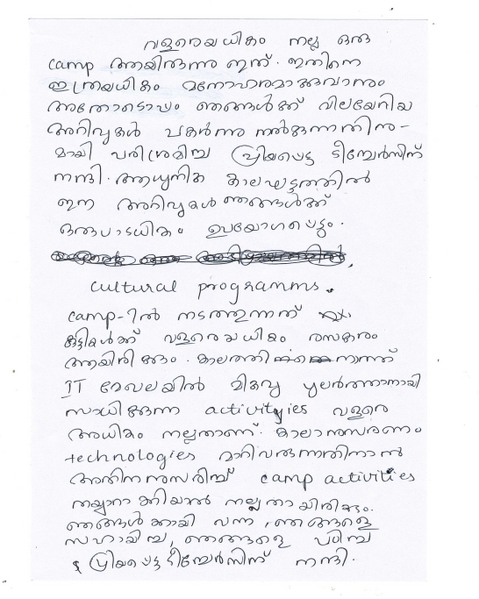 വളരെയധികം നല്ല ഒരു
camp ആയിരുന്നു ഇത്. ഇതിനെ
ഇത്രയധികം മനോഹരമാക്കുവാനും
അതോടൊപ്പം ഞങ്ങൾക്ക് വിലയേറിയ
അറിവുകൾ പകർന്നു നൽകുന്നതിനു-
മായി പരിശ്രമിച്ച പ്രിയപ്പെട്ട ടീച്ചേർസിന്
നന്ദി. ആധുനിക കാലഘട്ടത്തിൽ
ഈ അറിവുകൾ ഞങ്ങൾക്ക്
ഒരുപാടധികം ഉപയോഗപ്പെടും.
cultural programms.
camp-ൽ നടത്തുന്നത്
കുട്ടികൾക്ക് വളരെയധികം രസകരം
ആയിരിക്കും. കാലത്തി നൊത്ത്
IT മേഖലയിൽ മികവു പുലർത്താനായി
സാധിക്കുന്ന activityies വളരെ
അധികം നല്ലതാണ്. കാലാനുസരണം
technologies മാറിവരുന്നതിനാൽ
അതിനനുസരിച്ച് camp activities
തയ്യാറാക്കിയാൽ നല്ലതായിരിക്കും.
ഞങ്ങൾക്കായി വന്ന, ഞങ്ങളെ
സഹായിച്ച, ഞങ്ങളെ പഠിപ്പിച്ച
പ്രിയപ്പെട്ട ടീച്ചേർസിന് നന്ദി.